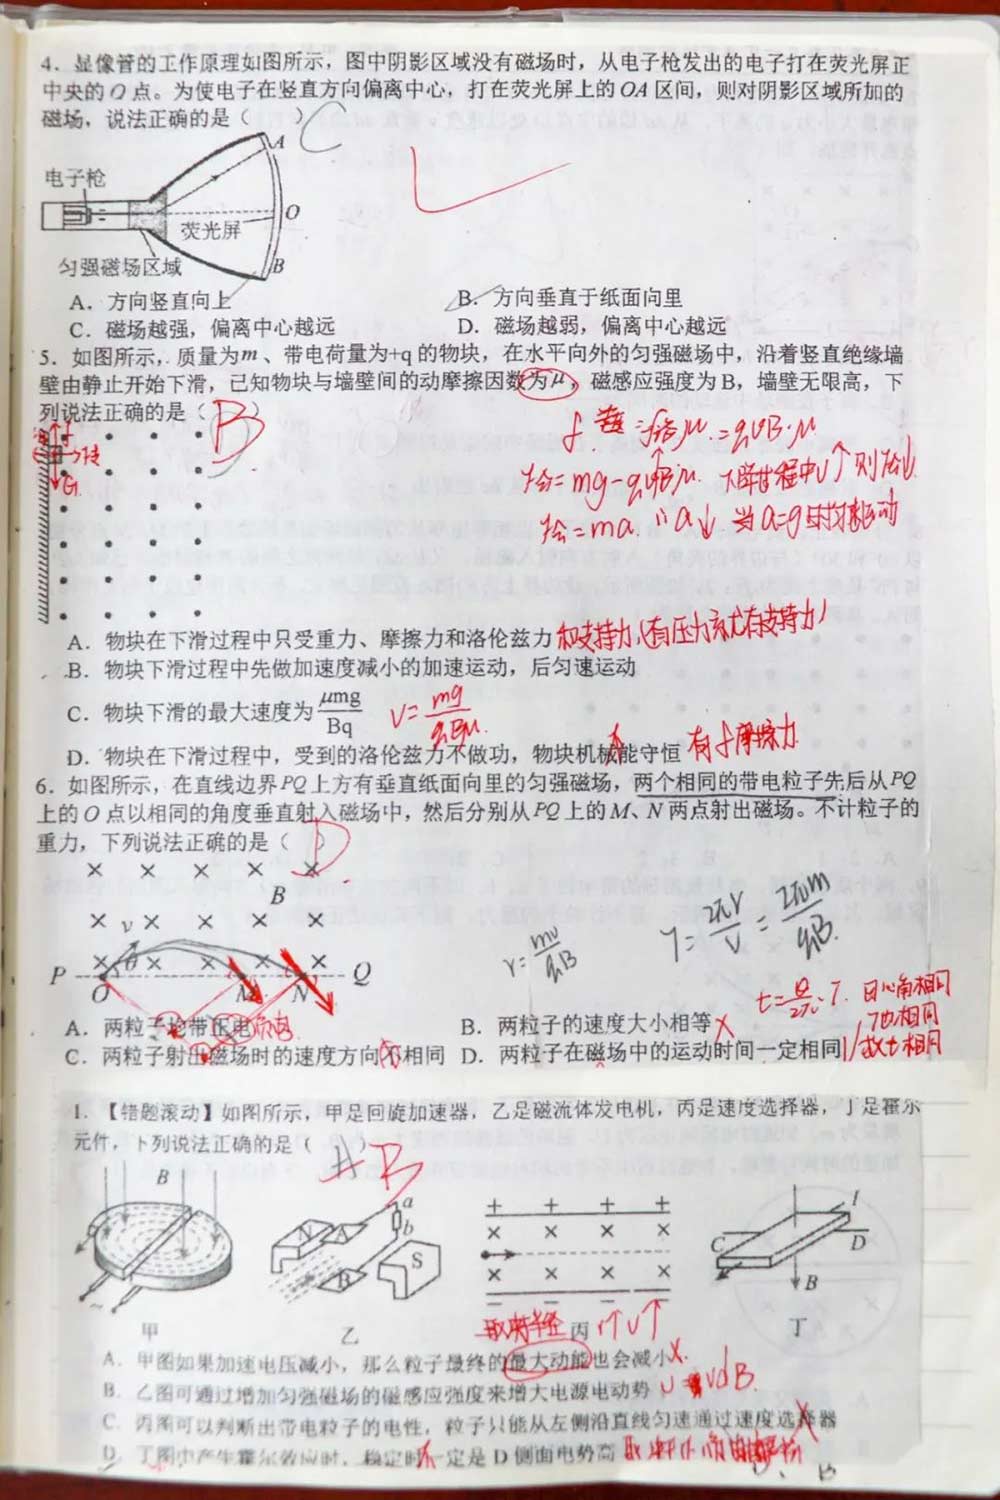 4．显像管的工作原理如图所示，图中阴影区域没有磁场时，从电子枪发出的电子打在荧光屏正
中央的O点。为使电子在竖直方向偏离中心，打在荧光屏上的OA区间，则对阴影区域所加的
磁场，说法正确的是（ C
A
电子枪
O
荧光屏
匀强磁场区域
B
A．方向竖直向上
B．方向垂直于纸面向里
C．磁场越强，偏离中心越远
D．磁场越弱，偏离中心越远
5．如图所示，质量为m、带电荷量为+q的物块，在水平向外的匀强磁场中，沿着竖直绝缘墙
壁由静止开始下滑，已知物块与墙壁间的动摩擦因数为μ，磁感应强度为B，墙壁无限高，下
列说法正确的是（ B ）
=qvB·μ
F合=mg-qvBμ. 下降过程中v↑则F合↓
F合=ma. ∴a↓
A．物块在下滑过程中只受重力、摩擦力和洛伦兹力 和支持力(有压力就有支持力)
B．物块下滑过程中先做加速度减小的加速运动，后匀速运动
C．物块下滑的最大速度为μmg/Bq v=mg/qBμ
D．物块在下滑过程中，受到的洛伦兹力不做功，物块机械能守恒 有f摩擦力
6．如图所示，在直线边界PQ上方有垂直纸面向里的匀强磁场，两个相同的带电粒子先后从PQ
上的O点以相同的角度垂直射入磁场中，然后分别从PQ上的M、N两点射出磁场。不计粒子的
重力，下列说法正确的是（ D ）
B
v
θ
P O M N Q
r=mv/qB
T=2πr/v=2πm/qB
t=θ/2π·T. 圆心角相同
T也相同
故t相同
A．两粒子均带正电 负电
B．两粒子的速度大小相等 ×
C．两粒子射出磁场时的速度方向不相同
D．两粒子在磁场中的运动时间一定相同
1．【错题滚动】如图所示，甲是回旋加速器，乙是磁流体发电机，丙是速度选择器，丁是霍尔
元件，下列说法正确的是（ A B
B
甲
N A B S a b
乙
丙
C D I B
丁
r↑v↑
A．甲图如果加速电压减小，那么粒子最终的最大动能也会减小 ×.
B．乙图可通过增加匀强磁场的磁感应强度来增大电源电动势 vdB.
C．丙图可以判断出带电粒子的电性，粒子只能从左侧沿直线匀速通过速度选择器
D．丁图中产生霍尔效应时，稳定时一定是D侧面电势高